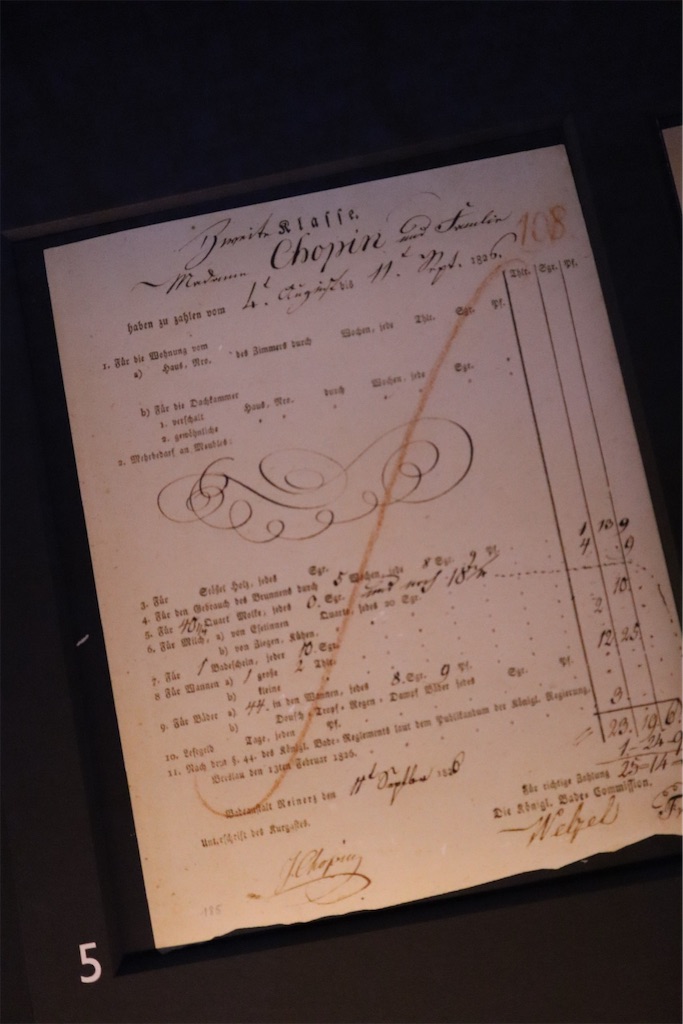 Zweite Klasse. 108
Madame Chopin und Familie
haben zu zahlen vom 4t August bis 11t Sept. 1826. Thlr. Sgr. Pf.
1. Für die Wohnung vom
a) Haus, Nro. des Zimmers durch Wochen, jede Thlr. Sgr. Pf.
b) Für die Dachkammer
1. verschalt Haus, Nro. durch Wochen, jede Sgr.
2. gewöhnliche
2. Mehrbedarf an Meubles:
3. Für Stößel Holz, jedes Sgr.
4. Für den Gebrauch des Brunnens durch 5 Wochen, jede 8 Sgr. 9 Pf. 1 13 9
5. Für Quart Molke, jedes Sgr. und noch 4 9
6. Für Milch, a) von Eselinnen Quart, jedes 20 Sgr.
b) von Ziegen, Kühen,
7. Für 1 Badeschein, jeder 10. Sgr. 10.
8 Für Wannen a) 1 große 2 Thlr. 2
b) kleine
9. Für Bäder a) 44. in den Wannen, jedes 8. Sgr. 9 Pf. 12 25
b) Douch-Tropf-Regen-Dampf Bäder jedes Sgr. Pf.
10. Lesegeld Tage, jeden Pf.
11. Nach dem §. 44. des Königl. Bade-Reglements laut dem Publikandum der Königl. Regierung. 3.
Breslau den 13ten Februar 1826.
23. 19 6
1-24-9
25-14-
Badeanstalt Reinerz den 11t September 1826
Für richtige Zahlung
Unterschrift des Kurgastes. Die Königl. Bade-Commission.
Welzel
JChopin
5